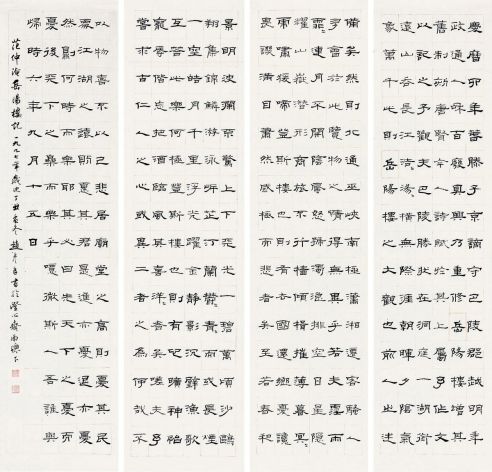 慶曆四年春滕子京謫守巴陵郡越明年
政通人和百廢具興乃重修岳陽樓增其
舊制刻唐賢今人詩賦於其上屬予作文
以記之予觀夫巴陵勝狀在洞庭一湖銜
遠山吞長江浩浩湯湯橫無際涯朝暉夕陰氣
象萬千此則岳陽樓之大觀也前人之述
備矣然則北通巫峽南極瀟湘遷客騷人
多會於此覽物之情得無異乎若夫霪雨
霏霏連月不開陰風怒號濁浪排空日星隱
耀山岳潛形商旅不行檣傾楫摧薄暮冥冥
虎嘯猿啼登斯樓也則有去國懷鄉憂讒
畏譏滿目蕭然感極而悲者矣至若春和
景明波瀾不驚上下天光一碧萬頃沙鷗
翔集錦鱗游泳岸芷汀蘭郁郁青青而或長煙
一空皓月千里浮光躍金靜影沉璧漁歌
互答此樂何極登斯樓也則有心曠神怡
寵辱偕忘把酒臨風其喜洋洋者矣嗟夫予
嘗求古仁人之心或異二者之為何哉不
以物喜不以己悲居廟堂之高則憂其民
處江湖之遠則憂其君是進亦憂退亦憂
然則何時而樂耶其必曰先天下之憂而
憂後天下之樂而樂乎噫微斯人吾誰與
歸時六年九月十五日
范仲淹岳陽樓記一九九七年歲次丁丑冬趙書於澄心齋南下